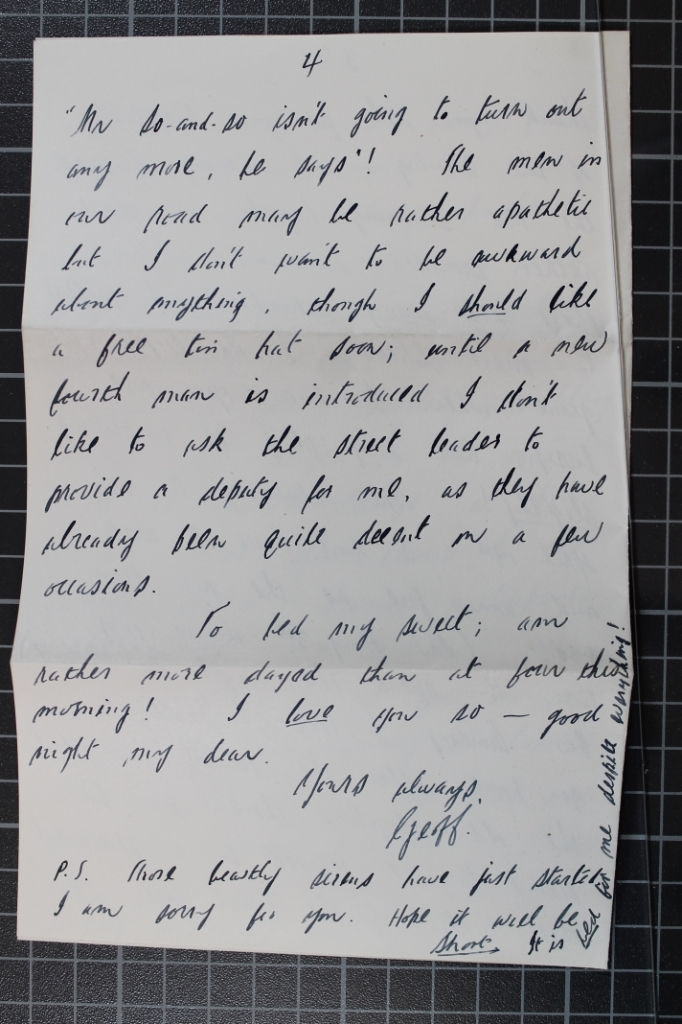 4
"Mr So-and-so isn't going to turn out
any more, he says"! The men in
our road may be rather apathetic
but I don't want to be awkward
about anything, though I should like
a free tin hat soon; until a new
fourth man is introduced I don't
like to ask the street leader to
provide a deputy for me, as they have
already been quite decent on a few
occasions.
To bed my sweet; am
rather more dazed than at four this
morning! I love you so — good
night my dear.
Yours always,
Geoff.
P.S. Those beastly sirens have just started
I am sorry for you. Hope it will be
short. It is
bed for me despite everything!